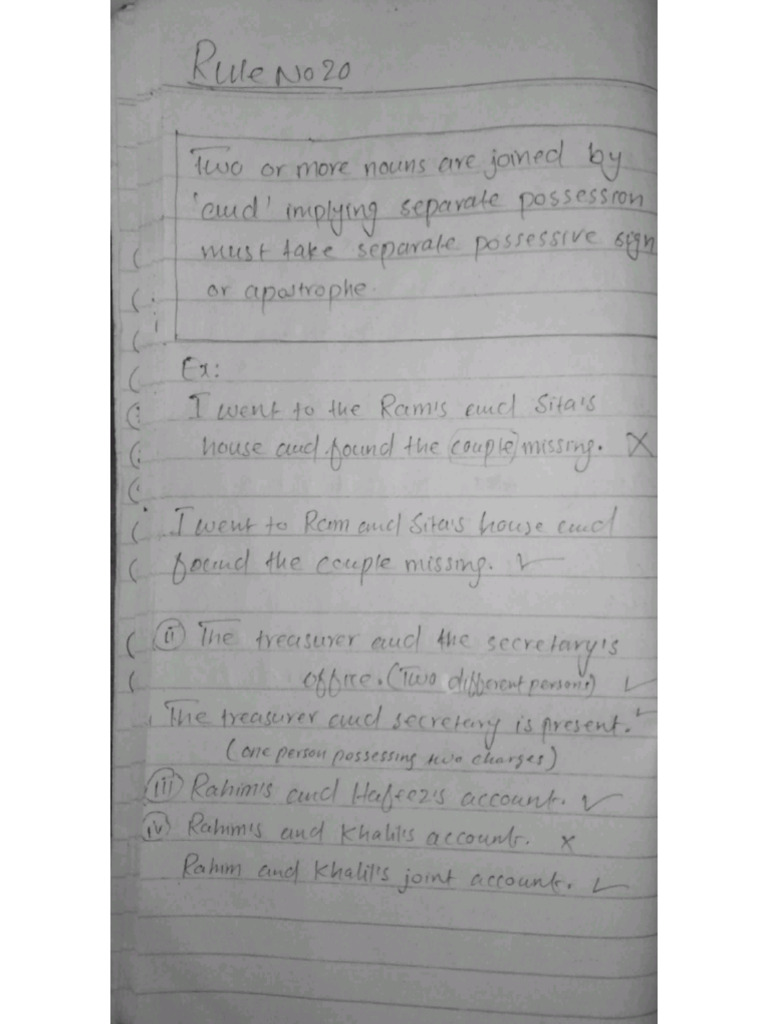 Rule No 20
Two or more nouns are joined by
'and' implying separate possession
must take separate possessive sign
or apostrophe.
Ex:
I went to the Ram's and Sita's
house and found the couple missing. ×
I went to Ram and Sita's house and
found the couple missing. ✓
(ii) The treasurer and the secretary's
office. (Two different persons) ✓
The treasurer and secretary is present. ✓
(one person possessing two charges)
(iii) Rahim's and Hafeez's account. ✓
(iv) Rahim's and Khalil's account. ×
Rahim and Khalil's joint account. ✓